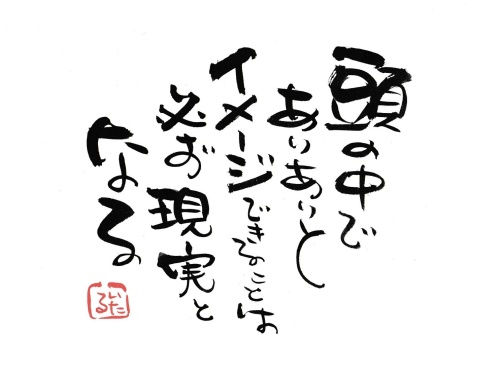 頭の中で
ありありと
イメージできることは
必ず現実と
なる
いたる